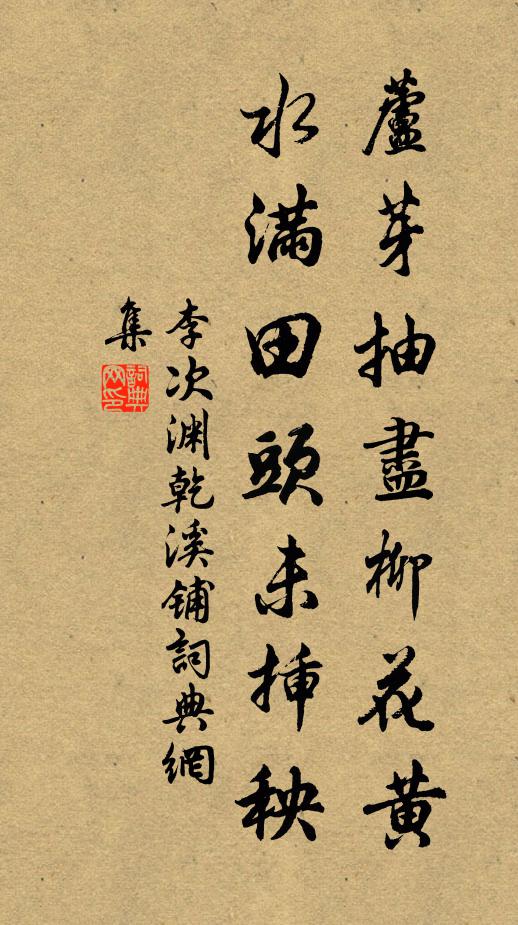 蘆芽抽盡柳花黃
水滿田頭未揷秧
李次渊乾溪鋪詞典網
集
詞典网印